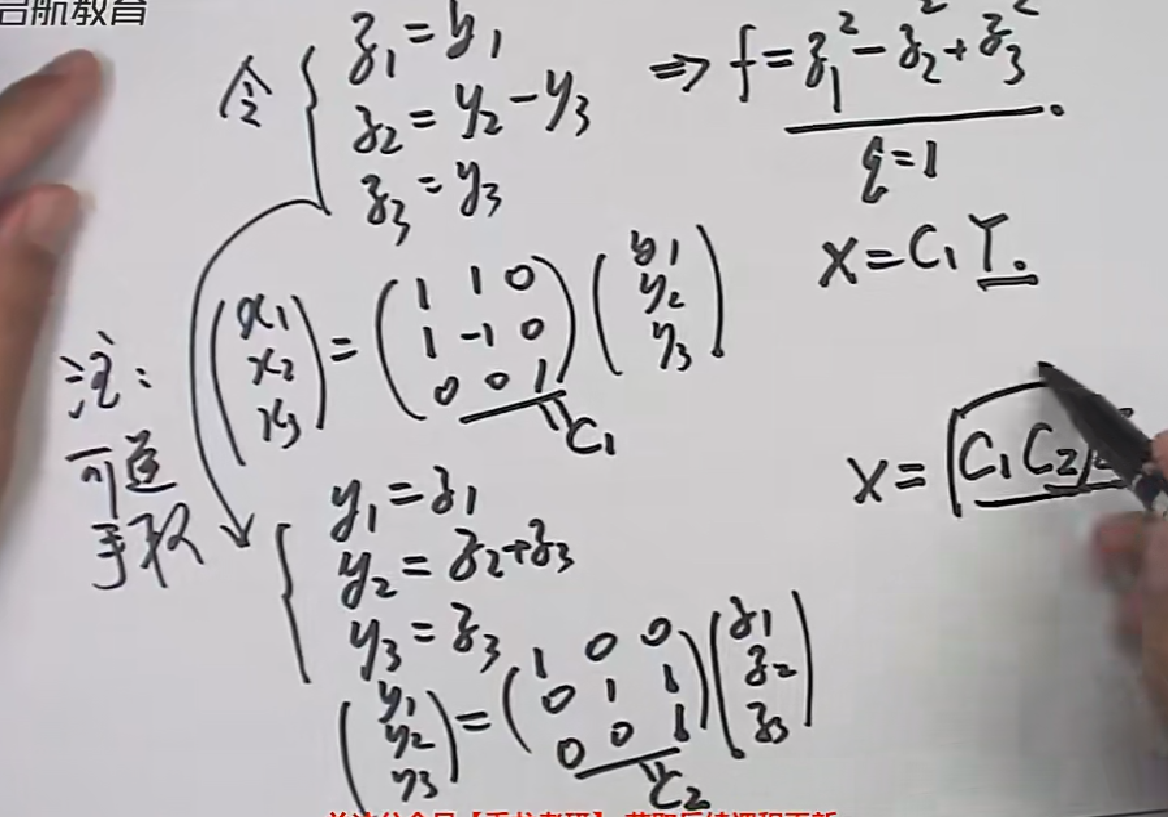 启航教育
令 { z₁=y₁
z₂=y₂-y₃
z₃=y₃
⇒ f=z₁²-z₂²+z₃².
q=1
X=C₁Y.
(x₁ x₂ x₃) = (1 1 0
1 -1 0
0 0 1) (y₁ y₂ y₃)
C₁
注:
可逆
X=C₁C₂
{ y₁=z₁
y₂=z₂+z₃
y₃=z₃
(y₁ y₂ y₃) = (1 0 0
0 1 1
0 0 1) (z₁ z₂ z₃)
C₂